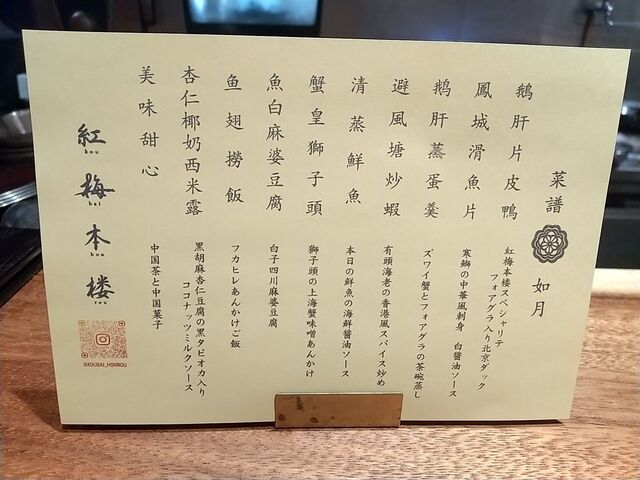 菜譜 如月
鵝肝片皮鴨
紅梅本楼スペシャリテ
フォアグラ入り北京ダック
鳳城滑魚片
寒鰤の中華風刺身 白醤油ソース
鵝肝蒸蛋羹
ズワイ蟹とフォアグラの茶碗蒸し
避風塘炒蝦
有頭海老の香港風スパイス炒め
清蒸鮮魚
本日の鮮魚の海鮮醤油ソース
蟹皇獅子頭
獅子頭の上海蟹味噌あんかけ
魚白麻婆豆腐
白子四川麻婆豆腐
魚翅撈飯
フカヒレあんかけご飯
杏仁椰奶西米露
黒胡麻杏仁豆腐の黒タピオカ入り
ココナッツミルクソース
美味甜心
中国茶と中国菓子
紅梅本楼
kou bai hon rou
@KOUBAI_HONROU